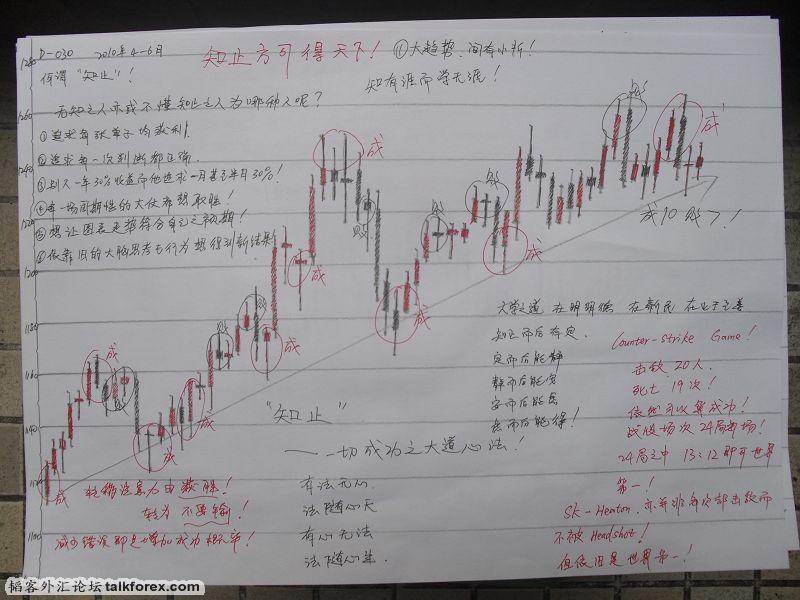 D-030 2010年4-6月
知止方可得天下！
(1)大趋势，间有小折！
何谓"知止"！
知有涯而学无涯！
无知之人亦或不懂知止之人为哪种人呢？
①追求每张单子均获利.
②追求每一次判断都正确.
③别人一年30%收益而他追求一月甚至半月30%！
④每一场周期性的大仗都想取胜！
⑤想让图表走势符合自己之预期！
⑥依靠旧的大脑思考与行为想得到新结果
1280
1260
1240
1220
1200
1180
1160
1140
1120
1100
成
成
成
成
成
成
成
成
成
成
败
败
败
败
败
败
成10败7！
大学之道 在明明德 在新民 在止于至善
知止而后有定
定而后能静
静而后能安
安而后能虑
虑而后能得！
"知止"
——一切成功之大道心法！
有法无心.
法随心灭
有心无法
法随心生.
转移注意力由获胜！
转为不要输！
减少错误即是增加成功概率！
Counter-Strike Game！
击毙 20人.
死亡 19次！
依然可以算成功！
战役场次 24局两场！
24局之中 13:12即可世界
第一！
SK-Heaton，亦并非每次都击毙而
不被 Headshot！
但依旧是世界第一！
韬客外汇论坛talkforex.com